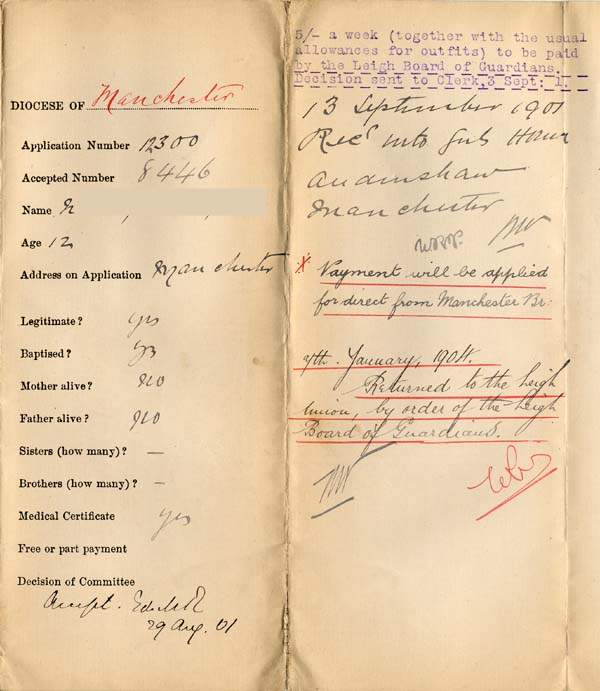 DIOCESE OF Manchester
Application Number 12300
Accepted Number 8446
Name
Age 12
Address on Application Manchester
Legitimate? yes
Baptised? yes
Mother alive? no
Father alive? no
Sisters (how many)? —
Brothers (how many)? —
Medical Certificate yes
Free or part payment
Decision of Committee
Accept. Ed. M R
29 Aug. 01
5/- a week (together with the usual
allowances for outfits) to be paid
by the Leigh Board of Guardians.
Decision sent to Clerk, 3 Sept: 1.
13 September 1901
Recd into Girls Home
Audenshaw
Manchester
X Payment will be applied
for direct from Manchester Br:
7th. January, 1904.
Returned to the Leigh
Union, by order of the Leigh
Board of Guardians.